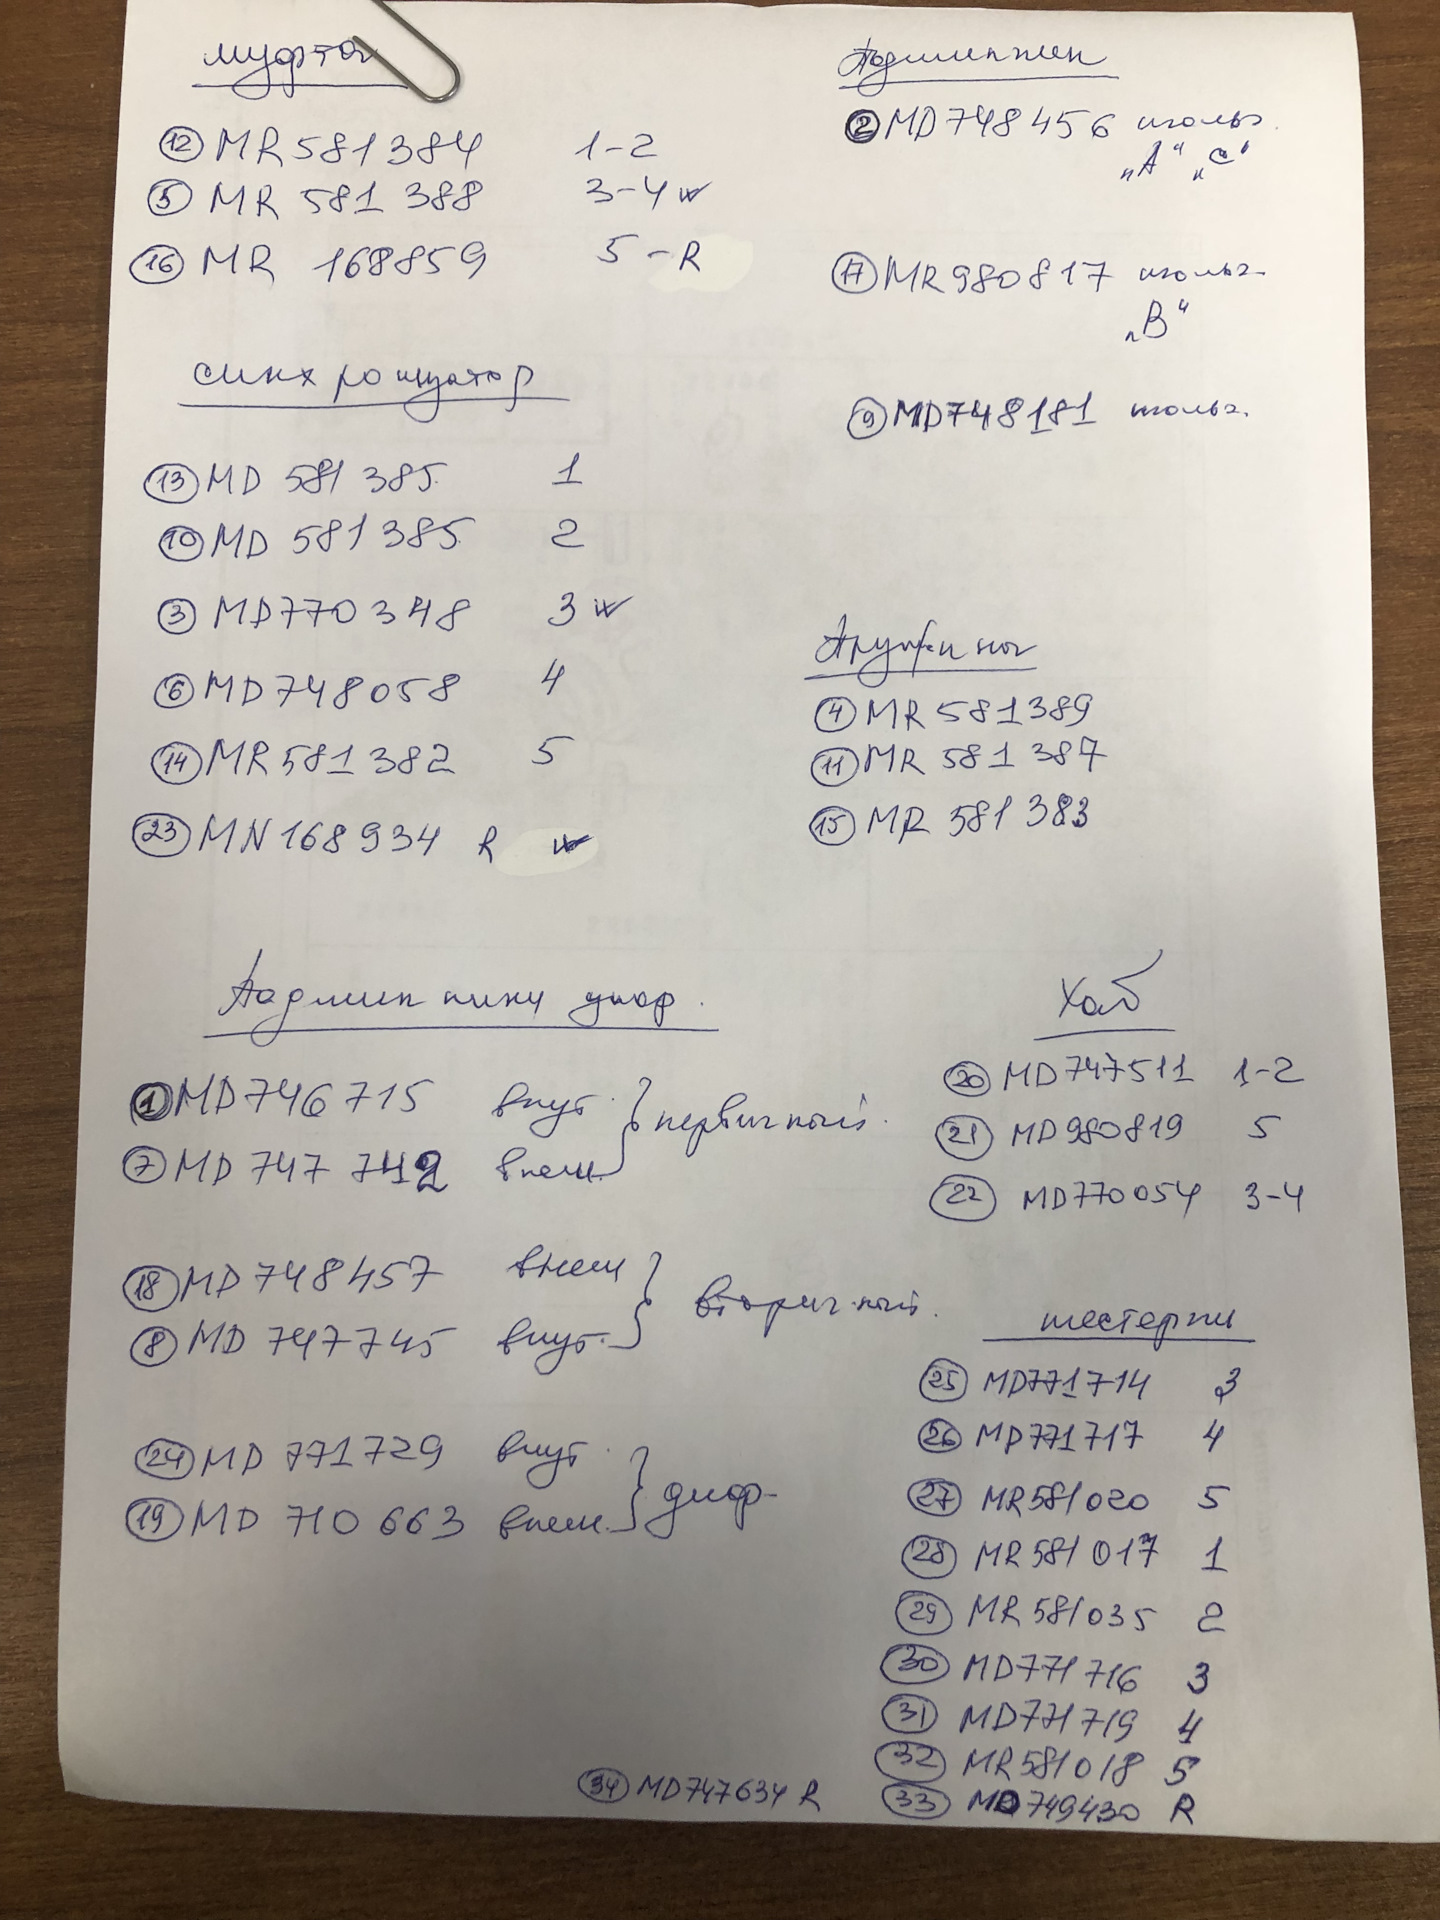 муфта
12 MR581384 1-2
5 MR 581 388 3-4 w
16 MR 168859 5-R
синхронизатор
13 MD 581 385 1
10 MD 581 385 2
3 MD770348 3 w
6 MD748058 4
14 MR581382 5
23 MN168934 R w
Подшипник
2 MD748456 игольч.
„А“ „С“
17 MR980817 игольч.
„В“
9 MD748181 игольч.
Пружины
4 MR 581389
11 MR 581 387
15 MR 581 383
Подшипники диф.
1 MD746715 внут.
7 MD 747 742 внеш.
первичный.
18 MD748457 внеш
8 MD 747745 внут.
вторичный.
24 MD 771729 внут.
19 MD 710 663 внеш.
диф-
Хаб
20 MD747511 1-2
21 MD980819 5
22 MD770054 3-4
шестерни
25 MD771714 3
26 MD771717 4
27 MR581020 5
28 MR581017 1
29 MR581035 2
30 MD771716 3
31 MD771719 4
32 MR581018 5
33 MD749430 R
34 MD747634 R